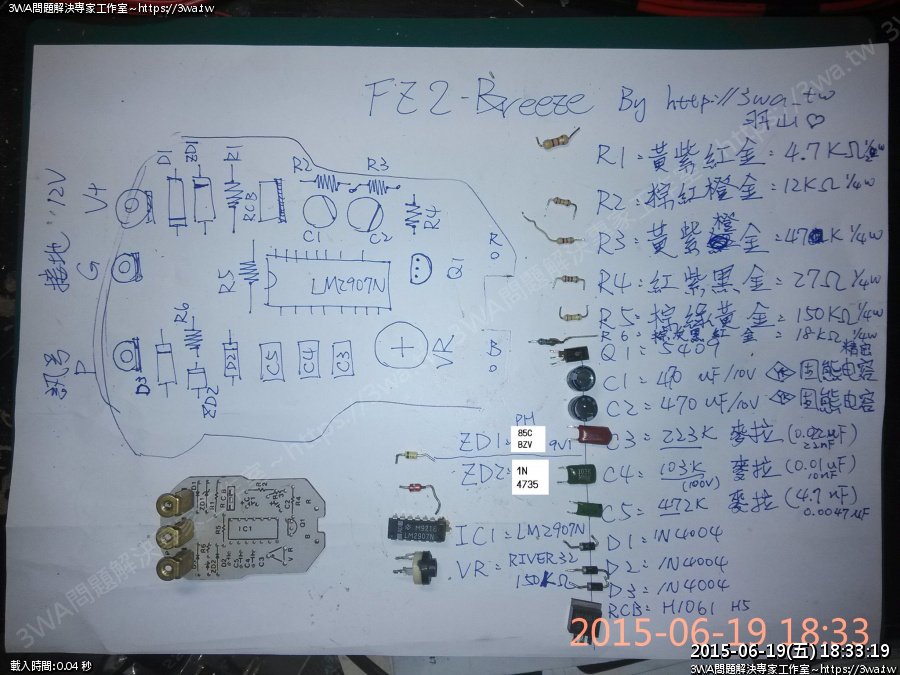 3WA問題解決專家工作室~https://3wa.tw
3WA問題解決專家工作室~https://3wa.tw
FZ2-Breeze By http://3wa.tw
羽山♡
接地:12V
V+
G
訊号
P
D1
ZD1
R1
RCB
R2
R3
C1
C2
R4
R5
LM2907N
Q1
R
R6
D3
ZD2
D2
C5
C4
C3
VR
B
R1=黃紫紅金=4.7KΩ 1/4w
R2=棕紅橙金=12KΩ 1/4w
R3=黃紫橙金=47K 1/4w
R4=紅紫黑金=27Ω 1/4w
R5=棕綠黃金=150KΩ 1/4w
R6=棕灰黑紅金=18KΩ 1/4w
精密
Q1=5409
C1=470uF/10V 固態电容
C2=470uF/10V 固態电容
C3=223K 麥拉(0.022uF)
22nF
C4=103K 麥拉(0.01uF)
(100V) 10nF
C5=472K 麥拉(4.7nF)
0.0047uF
D1=1N4004
D2=1N4004
D3=1N4004
RCB=H1061 H5
PH
ZD1=85C BZV 9V1
ZD2=1N 4735
IC1=LM2907N
VR=RIVER32
150KΩ
M921C
LM2907N
IC1
2015-06-19 18:33
2015-06-19(五) 18:33:19
載入時間:0.04 秒
3WA問題解決專家工作室~https://3wa.tw